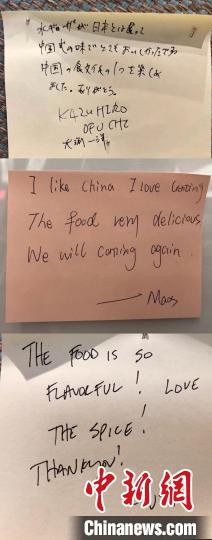 水ギョーザが日本とは違って
中国式の味でとてもおいしかったです
中国の食文化の1つを楽しめ
ました。ありがとう。
KAZUHIRO
OFUCHI
I like China I love
The food very delicious
We will coming again.
THE FOOD IS SO
FLAVORFUL! LOVE
THE SPICE!
THANK YOU!
中新网
Chinanews.com